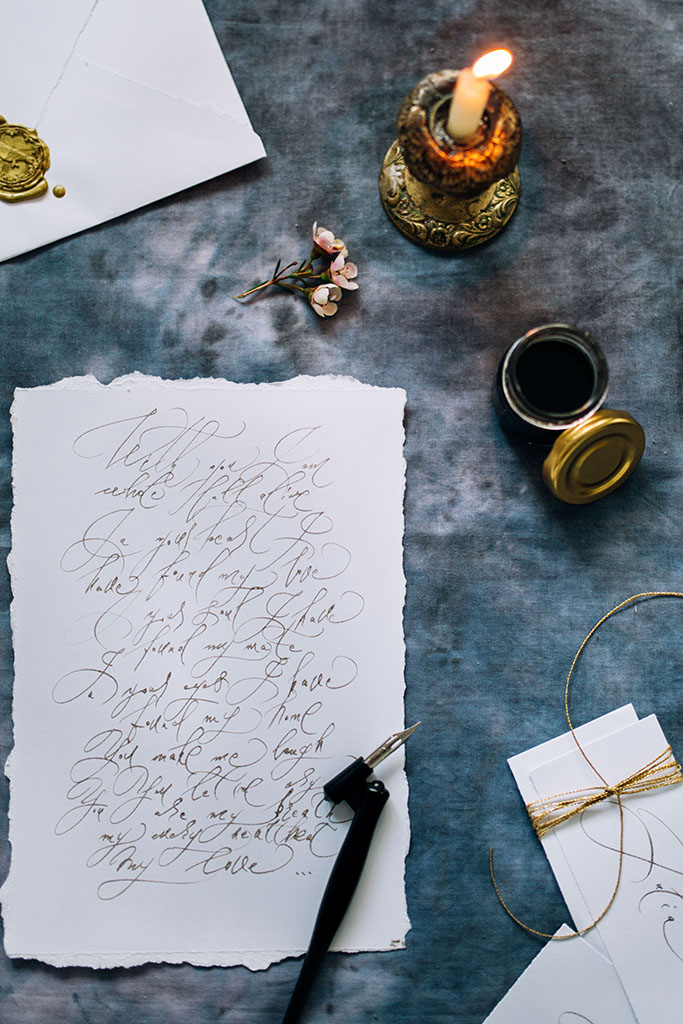 With you I am
whole full alive
In your heart I
have found my love
I your soul I have
found my mate
In your eyes I have
found my home
You make me laugh
You let me cry
You are my breath
my every heartbeat
my love ...